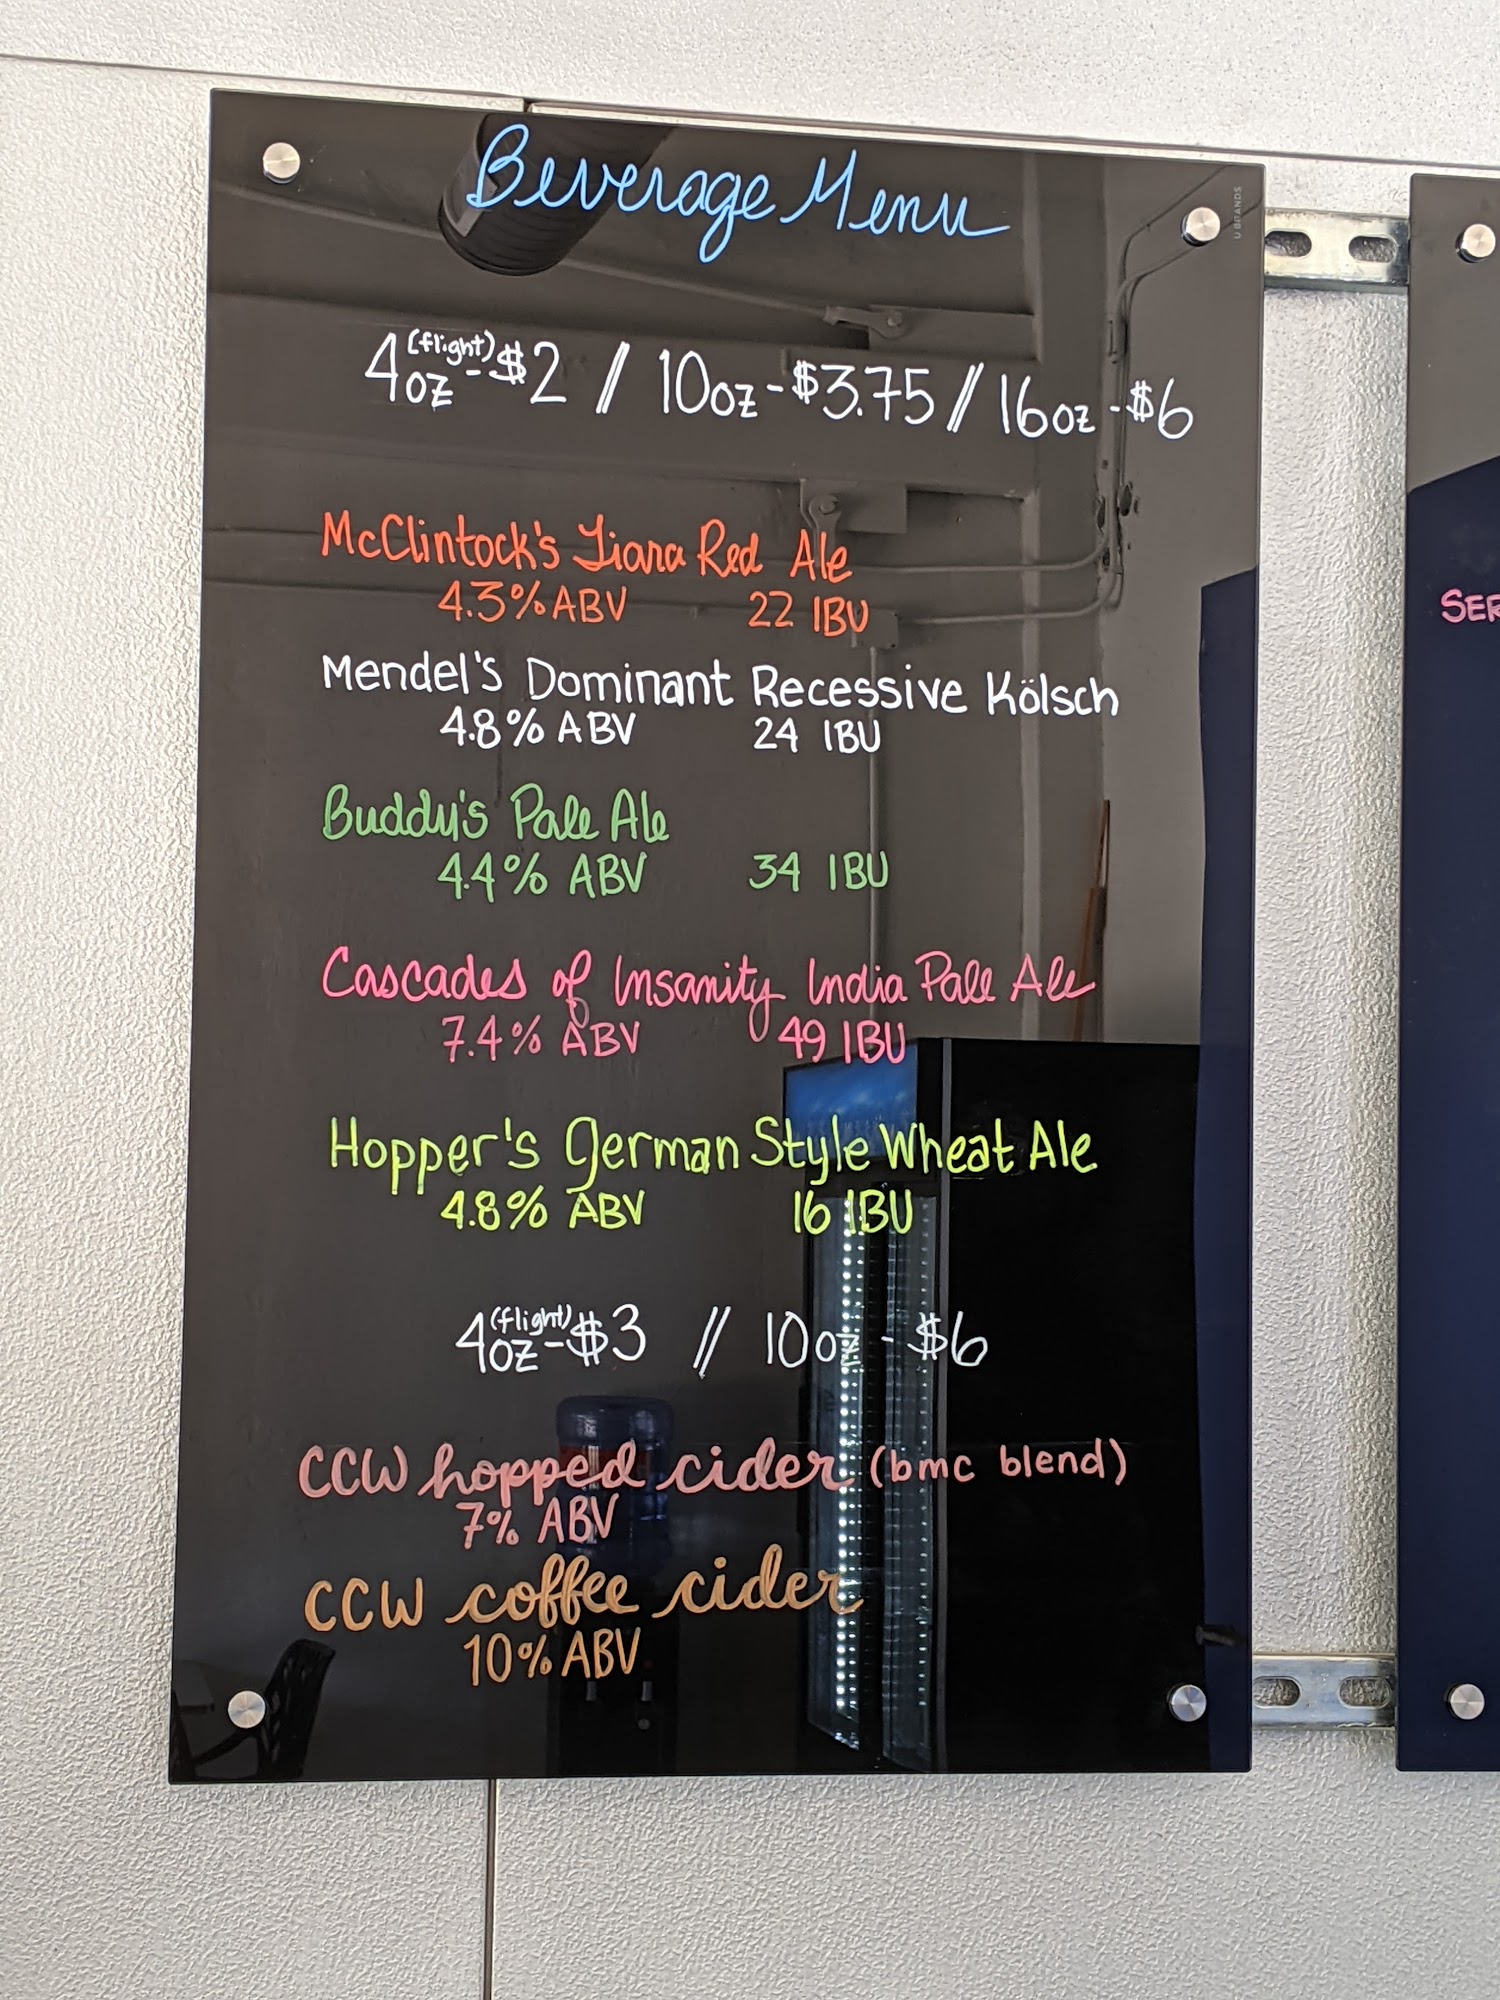 Beverage Menu
U BRANDS
4oz (flight) - $2 // 10oz - $3.75 // 16oz - $6
McClintock's Tiara Red Ale
4.3% ABV 22 IBU
Mendel's Dominant Recessive Kölsch
4.8% ABV 24 IBU
Buddy's Pale Ale
4.4% ABV 34 IBU
Cascades of Insanity India Pale Ale
7.4% ABV 49 IBU
Hopper's German Style Wheat Ale
4.8% ABV 16 IBU
4oz (flight) - $3 // 10oz - $6
CCW hopped cider (bmc blend)
7% ABV
CCW coffee cider
10% ABV
SER